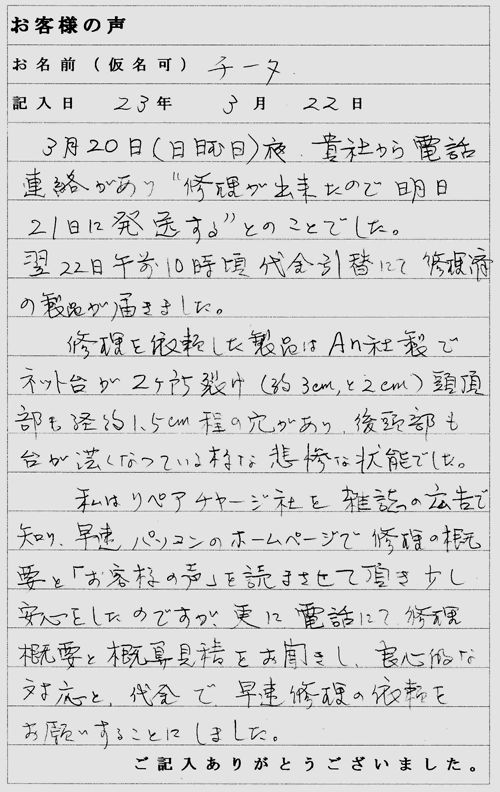 お客様の声
お名前（仮名可） チータ
記入日 23年 3月 22日
3月20日(日曜日)夜、貴社から電話
連絡があり“修理が出来たので明日
21日に発送する”とのことでした。
翌22日午前10時頃代金引替にて修理済
の製品が届きました。
修理を依頼した製品はAn社製で
ネット台が2ヶ所裂け(約3cm,と2cm)頭頂
部も経約1.5cm程の穴があり、後頭部も
台が薄くなっている様な悲惨な状態でした。
私はリペアチャージ社を雑誌の広告で
知り、早速パソコンのホームページで修理の概
要と「お客様の声」を読まさせて頂き少し
安心をしたのですが、更に電話にて修理
概要と概算見積をお聞きし、良心的な
対応と、代金で早速修理の依頼を
お願いすることにしました。
ご記入ありがとうございました。